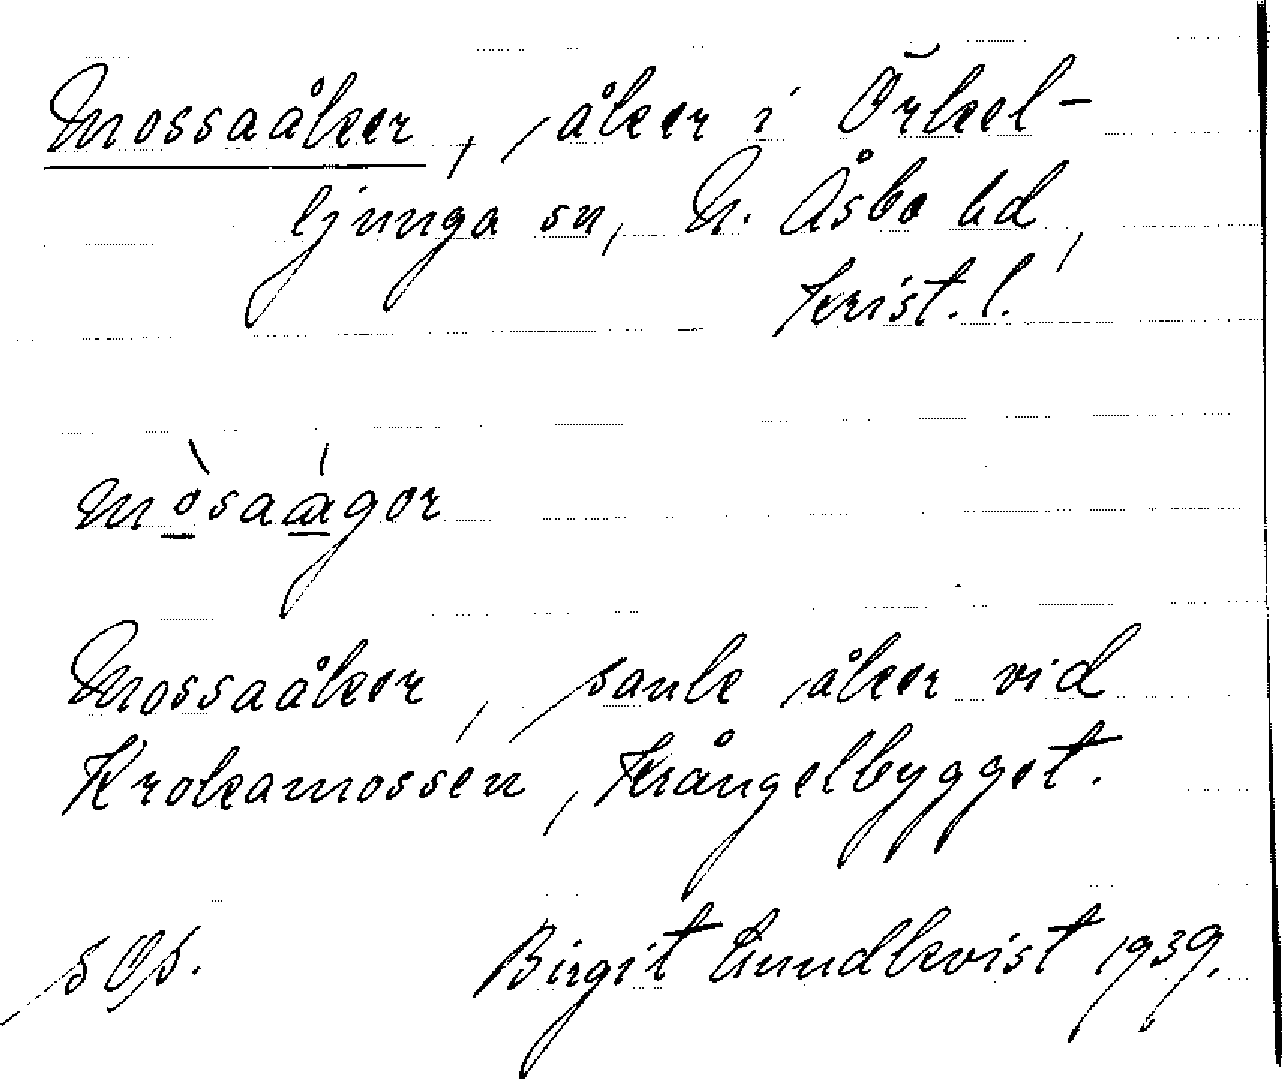 Mossaåker, åker i Örkel-
ljunga sn, N. Åsbo hd,
Krist. l.
mòsaágor
Mossaåker, sank åker vid
Krokamossen, Krångelbygget.
Birgit Lundkvist 1939.